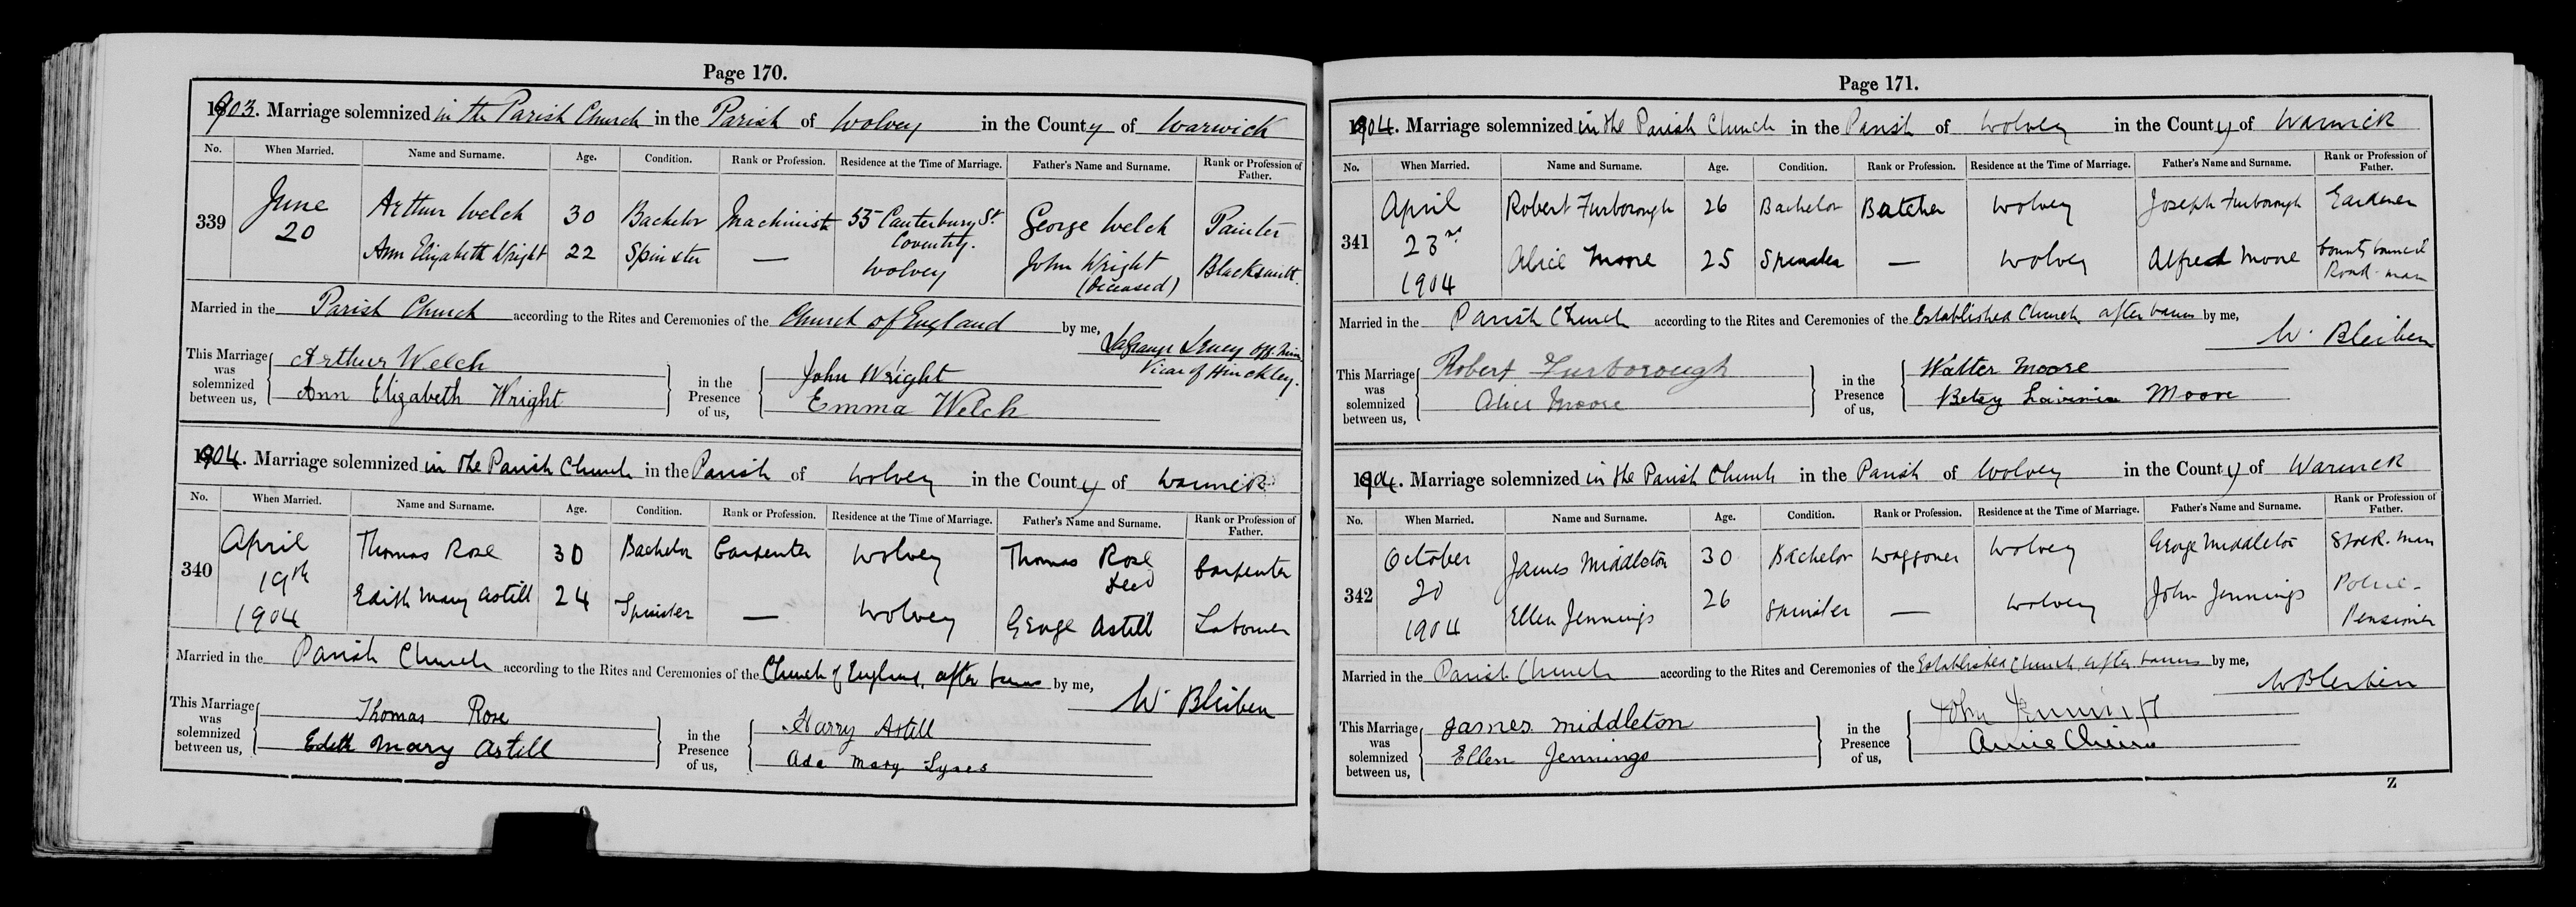 Page 170.
1903. Marriage solemnized in the Parish Church in the Parish of Wolvey in the County of Warwick
No. When Married. Name and Surname. Age. Condition. Rank or Profession. Residence at the Time of Marriage. Father's Name and Surname. Rank or Profession of Father.
339 June 20 Arthur Welch 30 Bachelor Machinist 55 Canterbury St Coventry. George Welch Painter
Ann Elizabeth Wright 22 Spinster — Wolvey John Wright (Deceased) Blacksmith.
Married in the Parish Church according to the Rites and Ceremonies of the Church of England by me,
Off. Min.
Vicar of Hinckley.
This Marriage was solemnized between us, Arthur Welch
Ann Elizabeth Wright
in the Presence of us, John Wright
Emma Welch
1904. Marriage solemnized in the Parish Church in the Parish of Wolvey in the County of Warwick
No. When Married. Name and Surname. Age. Condition. Rank or Profession. Residence at the Time of Marriage. Father's Name and Surname. Rank or Profession of Father.
340 April 19th 1904 Thomas Rose 30 Bachelor Carpenter Wolvey Thomas Rose Decd Carpenter
Edith Mary Astill 24 Spinster — Wolvey George Astill Labourer
Married in the Parish Church according to the Rites and Ceremonies of the Church of England, after banns by me,
W. Bleiben
This Marriage was solemnized between us, Thomas Rose
Edith Mary Astill
in the Presence of us, Harry Astill
Ada Mary
Page 171.
1904. Marriage solemnized in the Parish Church in the Parish of Wolvey in the County of Warwick
No. When Married. Name and Surname. Age. Condition. Rank or Profession. Residence at the Time of Marriage. Father's Name and Surname. Rank or Profession of Father.
341 April 23rd 1904 Robert Furborough 26 Bachelor Butcher Wolvey Joseph Furborough Gardener
Alice Moore 25 Spinster — Wolvey Alfred Moore County Council Road-man
Married in the Parish Church according to the Rites and Ceremonies of the Established Church after banns by me,
W. Bleiben
This Marriage was solemnized between us, Robert Furborough
Alice Moore
in the Presence of us, Walter Moore
Betsy Lavinia Moore
1904. Marriage solemnized in the Parish Church in the Parish of Wolvey in the County of Warwick
No. When Married. Name and Surname. Age. Condition. Rank or Profession. Residence at the Time of Marriage. Father's Name and Surname. Rank or Profession of Father.
342 October 20 1904 James Middleton 30 Bachelor Waggoner Wolvey George Middleton Stock-man
Ellen Jennings 26 Spinster — Wolvey John Jennings Police-Pensioner
Married in the Parish Church according to the Rites and Ceremonies of the Established Church, after banns by me,
W Bleiben
This Marriage was solemnized between us, James Middleton
Ellen Jennings
in the Presence of us, John Jennings
Annie
Z